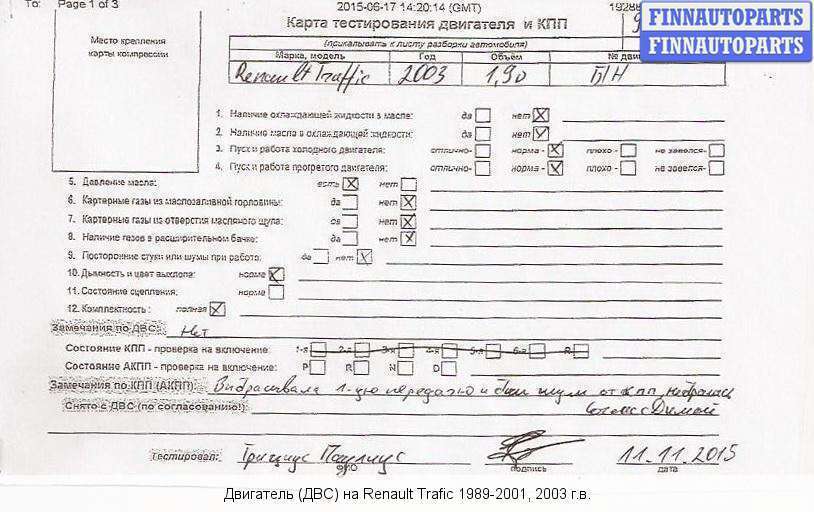 To: Page 1 of 3 2015-06-17 14:20:14 (GMT) 19288
FINNAUTOPARTS
FINNAUTOPARTS
Карта тестирования двигателя и КПП
(прикалывать к листу разборки автомобиля)
Место крепления
карты компрессии
Марка, модель Год Объём № двиг
Renault Traffic 2003 1,90 Б/Н
1. Наличие охлаждающей жидкости в масле: да нет
2. Наличие масла в охлаждающей жидкости: да нет
3. Пуск и работа холодного двигателя: отлично- норма - плохо- не завелся-
4. Пуск и работа прогретого двигателя: отлично- норма - плохо - не завелся-
5. Давление масла: есть нет
6. Картерные газы из маслозаливной горловины: да нет
7. Картерные газы из отверстия масляного щупа: да нет
8. Наличие газов в расширительном бачке: да нет
9. Посторонние стуки или шумы при работе: да нет
10. Дымность и цвет выхлопа: норма
11. Состояние сцепления: норма
12. Комплектность : полная
Замечания по ДВС: Нет
Состояние КПП - проверка на включение: 1-я 2-я 3-я 4-я 5-я 6-я R-
Состояние АКПП - проверка на включение: P R N D
Замечания по КПП (АКПП): Выбрасывала 1-ую передачу и был шум от КПП,
Снято с ДВС (по согласованию!): Димой
Тестировал: 11.11.2015
ФИО подпись дата
Двигатель (ДВС) на Renault Trafic 1989-2001, 2003 г.в.